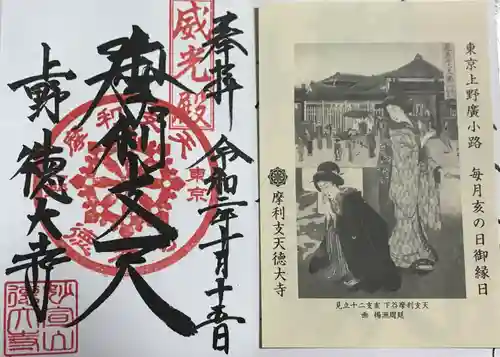 奉拝
威光殿
令和二年十月十五日
摩利支天
東京
上野 徳大寺
妙宣山
徳大寺
東京上野廣小路 毎月亥の日御縁日
摩利支天徳大寺
見立十二支亥 下谷摩利支天
画 楊洲周延